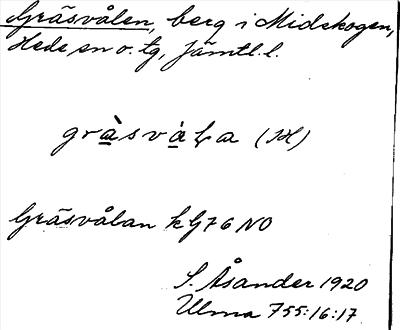 Gräsvålen, berg i Midskogen,
Hede sn o. tg, Jämtl. l.
gràsvàḷa (JH)
Gräsvålan kG76 NO
S. Åsander 1920
Ulma 755:16:17